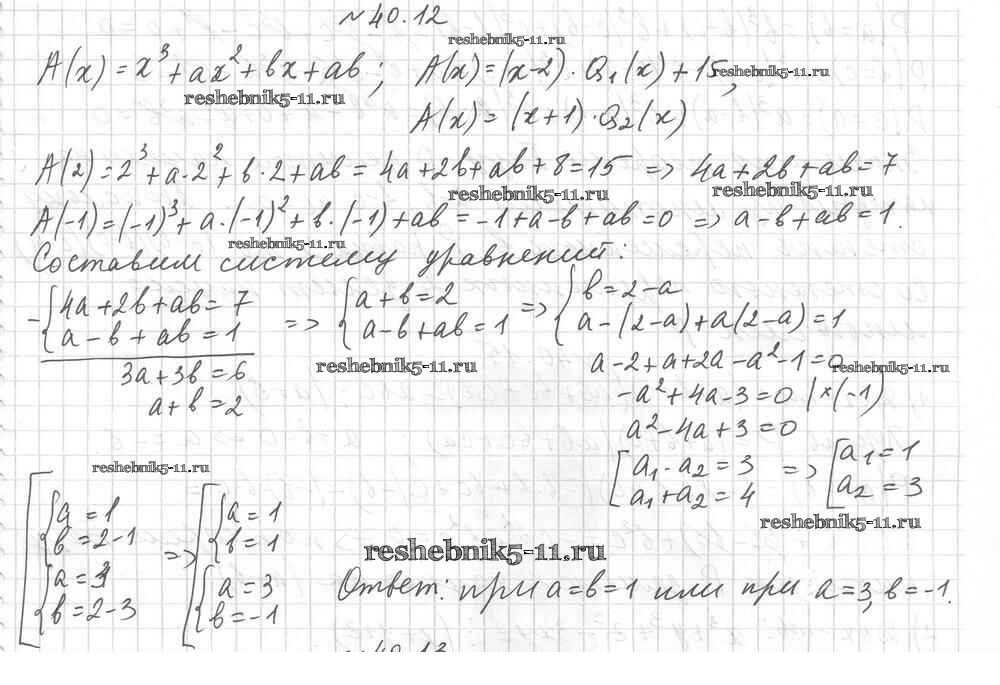 № 40.12
reshebnik5-11.ru
A(x) = x³ + ax² + bx + ab; A(x) = (x-2) · Q₁(x) + 15,
reshebnik5-11.ru reshebnik5-11.ru
A(x) = (x+1) · Q₂(x)
A(2) = 2³ + a·2² + b·2 + ab = 4a + 2b + ab + 8 = 15 => 4a + 2b + ab = 7
reshebnik5-11.ru reshebnik5-11.ru
A(-1) = (-1)³ + a·(-1)² + b·(-1) + ab = -1 + a - b + ab = 0 => a - b + ab = 1.
reshebnik5-11.ru
Составим систему уравнений:
- { 4a + 2b + ab = 7
a - b + ab = 1
3a + 3b = 6
a + b = 2
=> { a + b = 2
a - b + ab = 1
reshebnik5-11.ru
=> { b = 2 - a
a - (2-a) + a(2-a) = 1
a - 2 + a + 2a - a² - 1 = 0
reshebnik5-11.ru
-a² + 4a - 3 = 0 | ×(-1)
a² - 4a + 3 = 0
[ a₁ · a₂ = 3
a₁ + a₂ = 4
=> [ a₁ = 1
a₂ = 3
reshebnik5-11.ru
reshebnik5-11.ru
[ { a = 1
b = 2-1
{ a = 3
b = 2-3
=> [ { a = 1
b = 1
{ a = 3
b = -1
reshebnik5-11.ru
Ответ: при a = b = 1 или при a = 3, b = -1.
№ 40.13